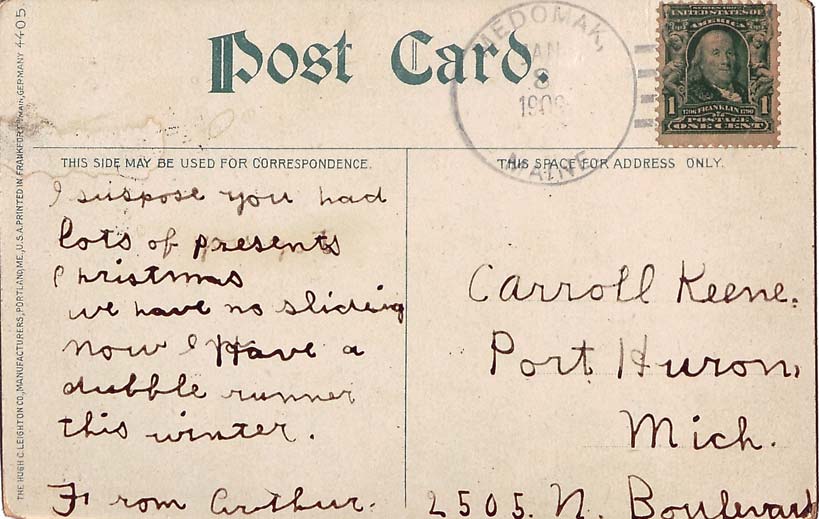 Post Card.
MEDOMAK,
JAN
8
MAINE
SERIES 1902
UNITED STATES OF
AMERICA
1 FRANKLIN 1
POSTAGE
ONE CENT
THIS SIDE MAY BE USED FOR CORRESPONDENCE.
THIS SPACE FOR ADDRESS ONLY.
I suspose you had
lots of presents
Christmas
we have no slideing
now I Have a
dubble runner
this winter.
From Arthur.
Carroll Keene.
Port Huron,
Mich.
2505. N. Boulevard
THE HUGH C. LEIGHTON CO., MANUFACTURERS, PORTLAND, ME., U.S.A. PRINTED IN FRANKFORT MAIN, GERMANY 4405